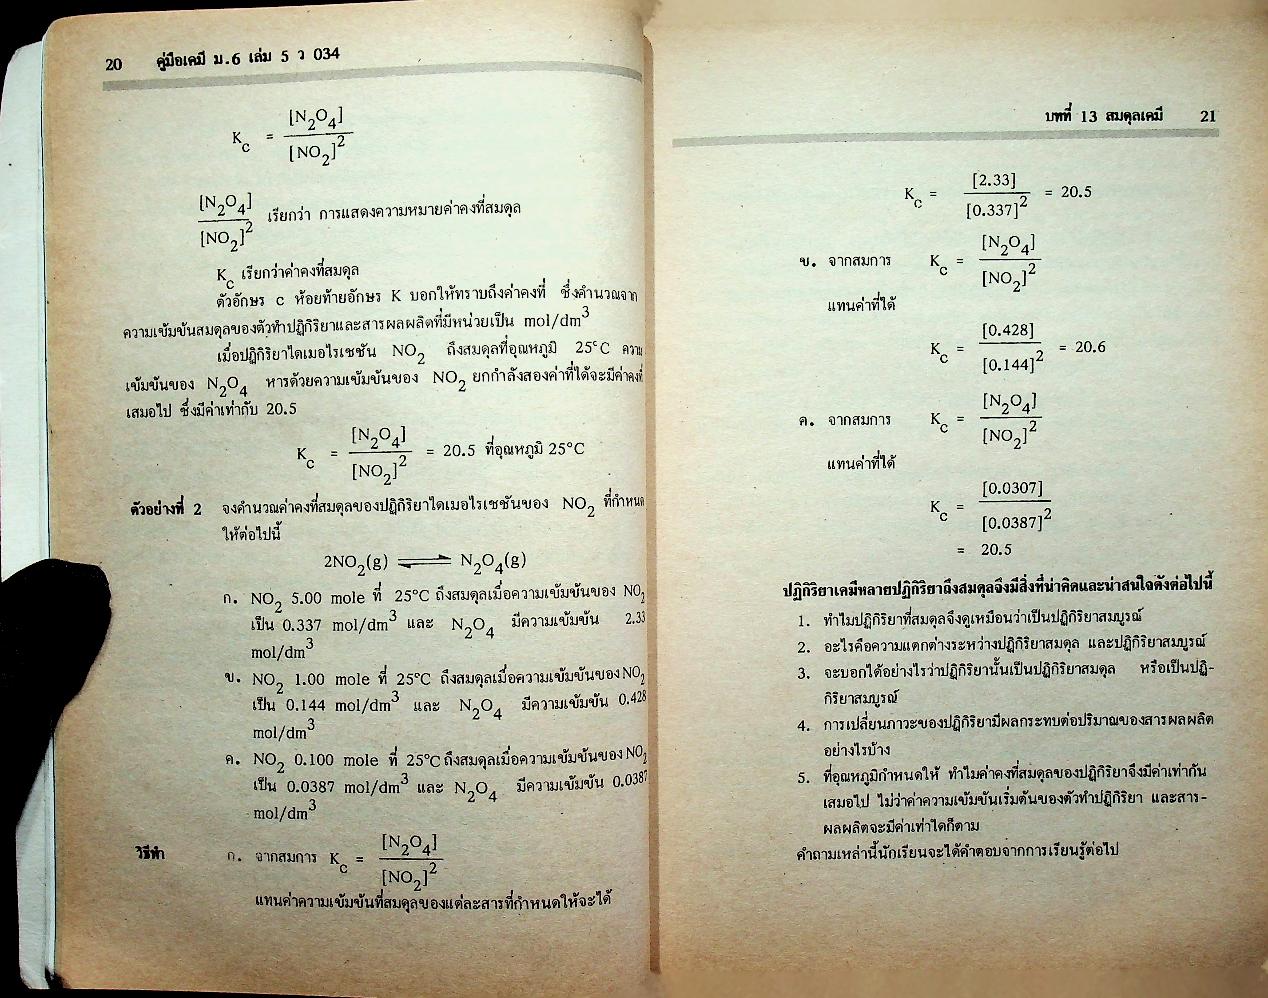 20 คู่มือเคมี ม.6 เล่ม 5 ว 034
Kc = [N2O4] / [NO2]^2
[N2O4] / [NO2]^2 เรียกว่า การแสดงความหมายค่าคงที่สมดุล
Kc เรียกว่าค่าคงที่สมดุล
ตัวอักษร c ห้อยท้ายอักษร K บอกให้ทราบถึงค่าคงที่ ซึ่งคำนวณจาก
ความเข้มข้นสมดุลของตัวทำปฏิกิริยาและสารผลผลิตที่มีหน่วยเป็น mol/dm^3
เมื่อปฏิกิริยาไดเมอไรเซชัน NO2 ถึงสมดุลที่อุณหภูมิ 25°C ความ
เข้มข้นของ N2O4 หารด้วยความเข้มข้นของ NO2 ยกกำลังสองค่าที่ได้จะมีค่าคงที่
เสมอไป ซึ่งมีค่าเท่ากับ 20.5
Kc = [N2O4] / [NO2]^2 = 20.5 ที่อุณหภูมิ 25°C
ตัวอย่างที่ 2 จงคำนวณค่าคงที่สมดุลของปฏิกิริยาไดเมอไรเซชันของ NO2 ที่กำหนด
ให้ต่อไปนี้
2NO2(g) ⇌ N2O4(g)
ก. NO2 5.00 mole ที่ 25°C ถึงสมดุลเมื่อความเข้มข้นของ NO2
เป็น 0.337 mol/dm^3 และ N2O4 มีความเข้มข้น 2.33
mol/dm^3
ข. NO2 1.00 mole ที่ 25°C ถึงสมดุลเมื่อความเข้มข้นของ NO2
เป็น 0.144 mol/dm^3 และ N2O4 มีความเข้มข้น 0.428
mol/dm^3
ค. NO2 0.100 mole ที่ 25°C ถึงสมดุลเมื่อความเข้มข้นของ NO2
เป็น 0.0387 mol/dm^3 และ N2O4 มีความเข้มข้น 0.0387
mol/dm^3
วิธีทำ ก. จากสมการ Kc = [N2O4] / [NO2]^2
แทนค่าความเข้มข้นที่สมดุลของแต่ละสารที่กำหนดให้จะได้
บทที่ 13 สมดุลเคมี 21
Kc = [2.33] / [0.337]^2 = 20.5
ข. จากสมการ Kc = [N2O4] / [NO2]^2
แทนค่าที่ได้
Kc = [0.428] / [0.144]^2 = 20.6
ค. จากสมการ Kc = [N2O4] / [NO2]^2
แทนค่าที่ได้
Kc = [0.0307] / [0.0387]^2
= 20.5
ปฏิกิริยาเคมีหลายปฏิกิริยาถึงสมดุลจึงมีสิ่งที่น่าคิดและน่าสนใจดังต่อไปนี้
1. ทำไมปฏิกิริยาที่สมดุลจึงดูเหมือนว่าเป็นปฏิกิริยาสมบูรณ์
2. อะไรคือความแตกต่างระหว่างปฏิกิริยาสมดุล และปฏิกิริยาสมบูรณ์
3. จะบอกได้อย่างไรว่าปฏิกิริยานั้นเป็นปฏิกิริยาสมดุล หรือเป็นปฏิ-
กิริยาสมบูรณ์
4. การเปลี่ยนภาวะของปฏิกิริยามีผลกระทบต่อปริมาณของสารผลผลิต
อย่างไรบ้าง
5. ที่อุณหภูมิกำหนดให้ ทำไมค่าคงที่สมดุลของปฏิกิริยาจึงมีค่าเท่ากัน
เสมอไป ไม่ว่าค่าความเข้มข้นเริ่มต้นของตัวทำปฏิกิริยา และสาร-
ผลผลิตจะมีค่าเท่าใดก็ตาม
คำถามเหล่านี้นักเรียนจะได้คำตอบจากการเรียนรู้ต่อไป